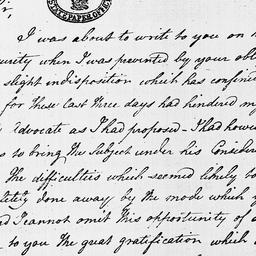 STATE PAPER OFFICE
I was about to write to you on
curity when I was prevented by your obl
slight indisposition which has confin
for these last three days had hindered my
Advocate as I had proposed - I had howe
to bring the Subject under his Conside
The difficulties which seemed likely to
done away by the mode which y
I cannot omit this opportunity of
to you the great gratification which